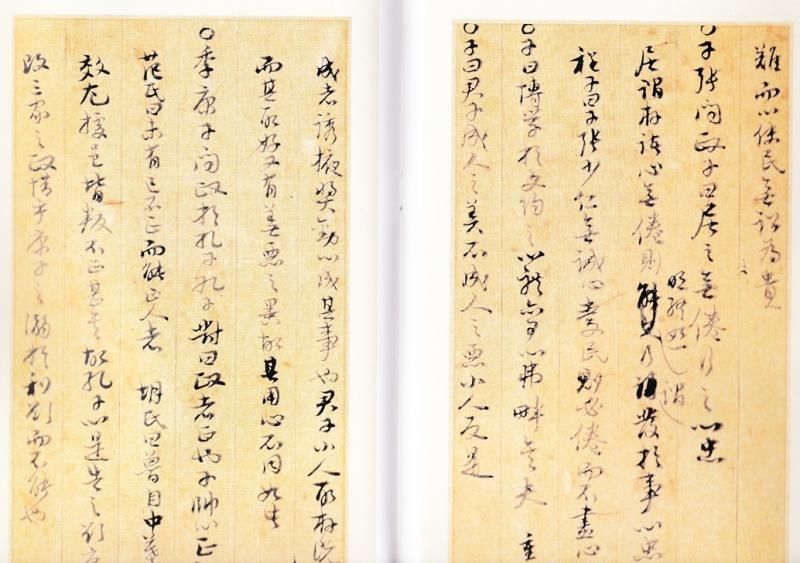 難而以使民無訟為貴
○子張問政子曰居之無倦行之以忠
居謂存諸心無倦則始終如一行謂發於事以忠
程子曰子張少仁無誠心愛民則必倦而不盡心
○子曰博學於文約之以禮亦可以弗畔矣夫 重
○子曰君子成人之美不成人之惡小人反是
成者誘掖獎勸以成其事也君子小人所存既
而其所好又有善惡之異故其用心不同如此
○季康子問政於孔子孔子對曰政者正也子帥以正
范氏曰未有己不正而能正人者 胡氏曰魯自中葉
效尤據邑背叛不正甚矣故孔子以是告之欲康
改三家之政惜乎康子之溺於利欲而不能也